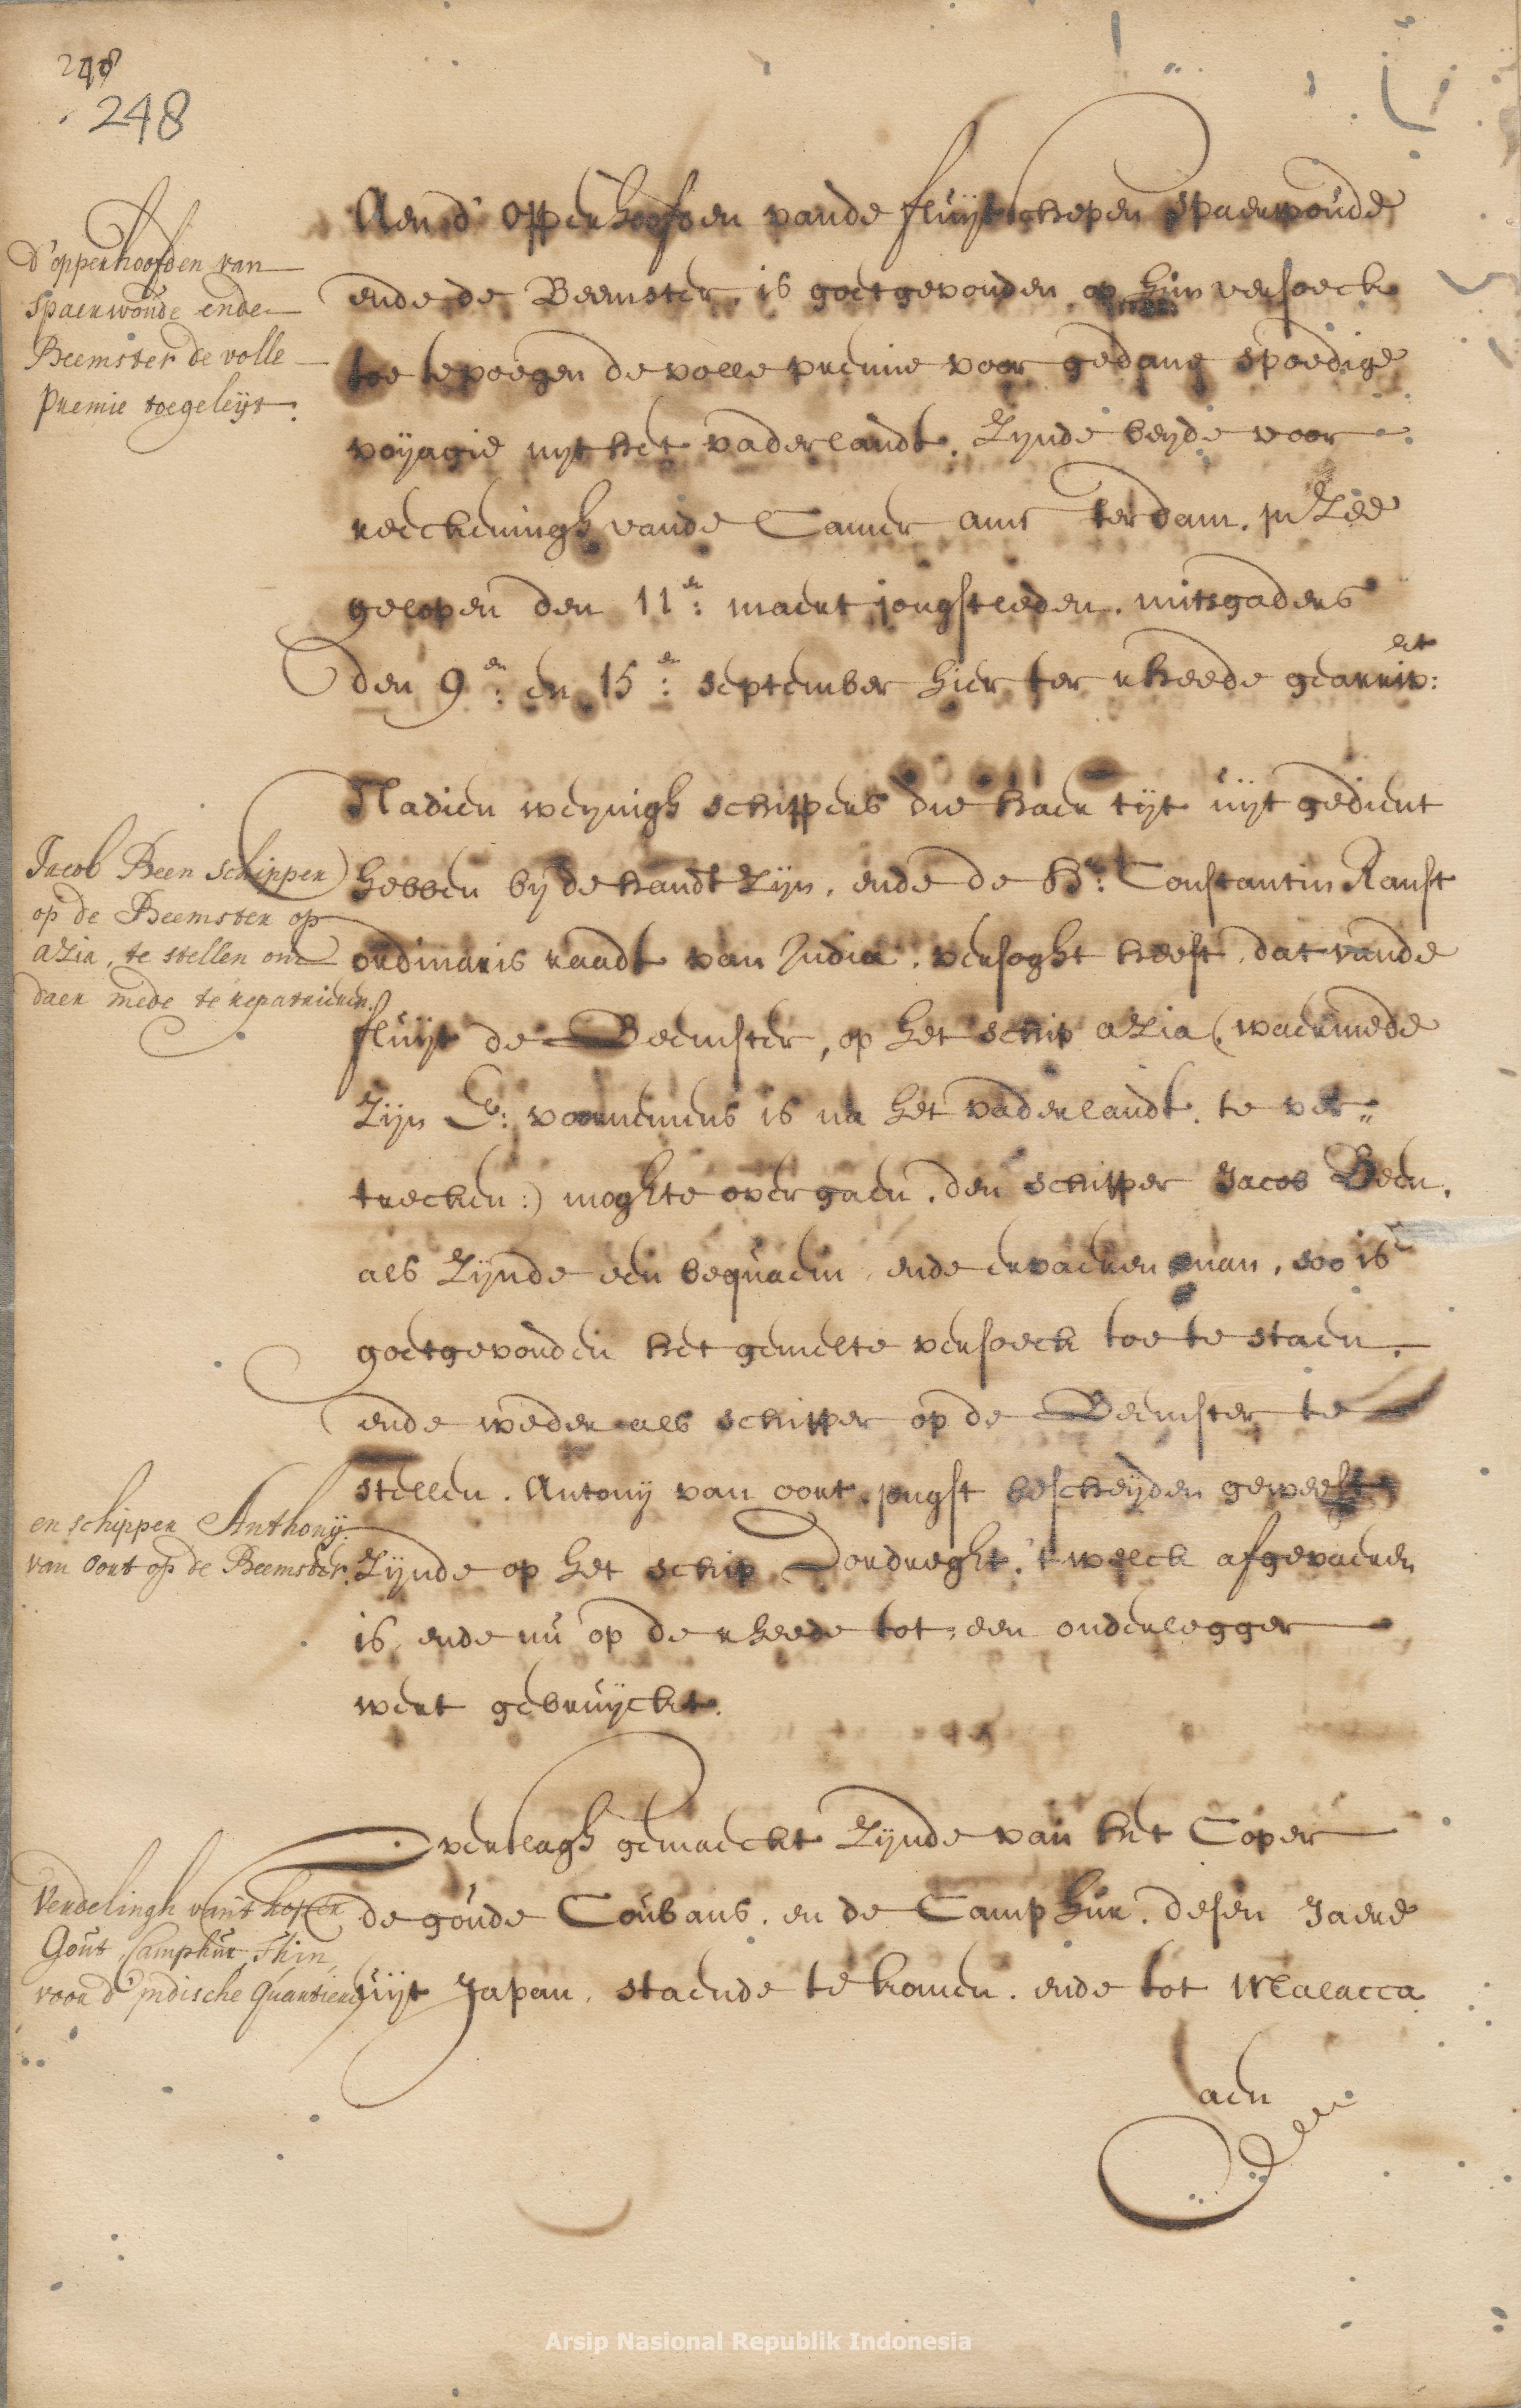 248
248
D' oppenhoofden van
Spaerwoude ende
Beemster de volle
Premie toegeleijt.
Aen d' Oppenhoofden vande fluijtschepen Spaerwoude
ende de Beemster, is goetgevonden op hun versoeck
toe te voegen de volle premie voor gedane spoedige
voijagie uijt het vaderlandt. Zijnde beijde voor
reeckeningh vande Camer amsterdam. in Zee
gelopen den 11en: maert jongstleden. mitsgaders
den 9en: en 15en: september hier ter rheede gearriv:eert
Jacob Been Schipper
op de Beemster op
azia, te stellen om
daer mede te repatrieren.
Nadien weijnigh schippers die haer tijt uijt gedient
hebben bij de handt zijn, ende de Hr: Constantin Ranst
ordinaris raadt van India, versoght heeft, dat vande
fluijt de Beemster, op het schip azia (waermede
Zijn E: voornemens is na het vaderlandt te ver„
trecken:) moghte overgaen, den schipper Jacob Been,
als Zijnde een bequaem, ende ervaeren man, soo is
goetgevonden het gemelte versoeck toe te staen.
ende weder als schipper op de Beemster te
en schipper Anthonij
van Oort op de Beemster.
stellen. Antonij van oort, jongst bescheijden geweest
Zijnde op het schip Dordreght, 't welck afgevaeren
is, ende nu op de rheede tot een onderlegger
wert gebruijckt.
Verdelingh van't koper
Gout, Camphur, Thin,
voor d' indische Quartieren
Overslagh gemaeckt Zijnde van het Coper
de goude Coubans, en de Camphur, desen Jaere
uijt Japan, staende te komen, ende tot Malacca
aen
Arsip Nasional Republik Indonesia